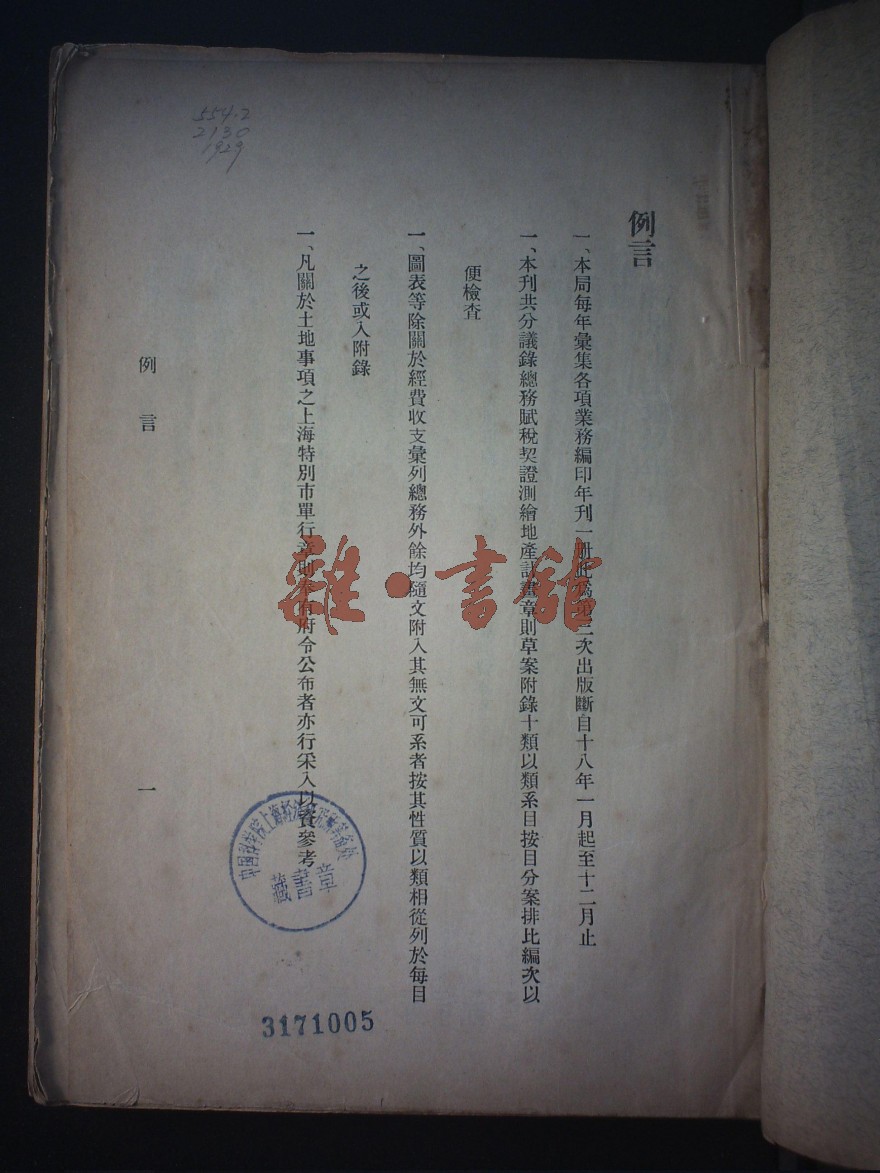 554.2
2130
1929
例言
一、本局每年彙集各項業務編印年刊一冊此爲第二次出版斷自十八年一月起至十二月止
一、本刊共分議錄總務賦稅契證測繪地產計畫章則草案附錄十類以類系目按目分案排比編次以
便檢查
一、圖表等除關於經費收支彙列總務外餘均隨文附入其無文可系者按其性質以類相從列於每目
之後或入附錄
一、凡關於土地事項之上海特別市單行章則奉有府令公布者亦行采入以資參考
例言
一
雜·書館
中国科学院上海经济研究所
藏書章
3171005